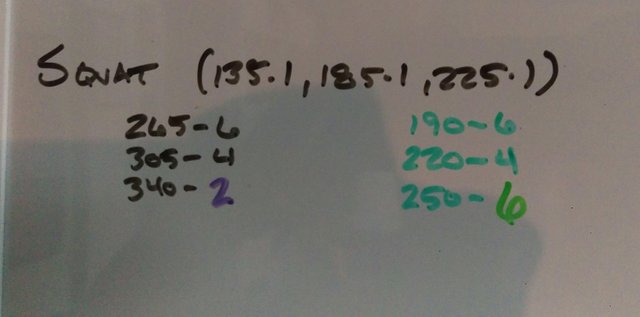 SQUAT (135.1, 185.1, 225.1)
265-6
305-4
340-2
190-6
220-4
250-6